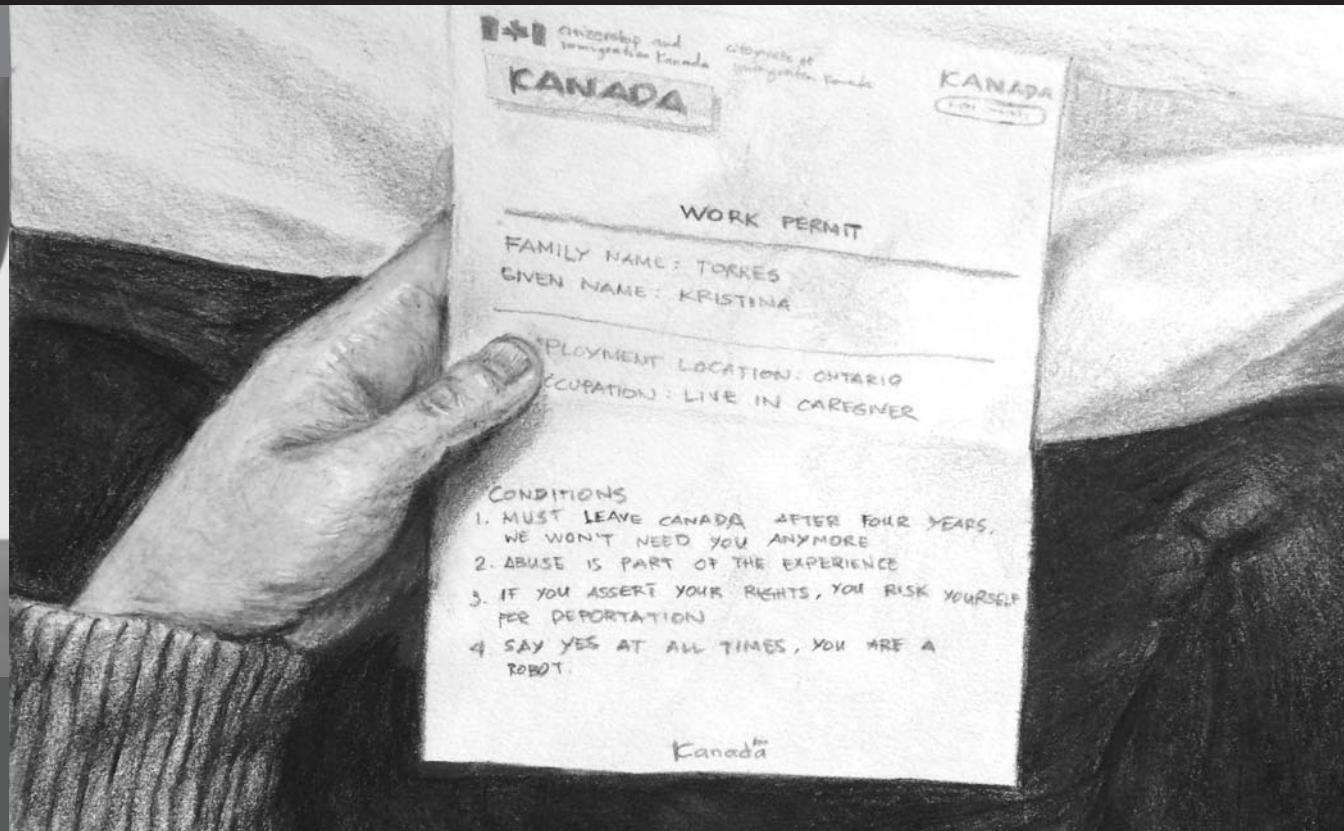 citizenship and
immigration Kanada
KANADA
KANADA
WORK PERMIT
FAMILY NAME: TORRES
GIVEN NAME: KRISTINA
PLOYMENT LOCATION: ONTARIO
CCUPATION: LIVE IN CAREGIVER
CONDITIONS
1. MUST LEAVE CANADA AFTER FOUR YEARS,
WE WON'T NEED YOU ANYMORE
2. ABUSE IS PART OF THE EXPERIENCE
3. IF YOU ASSERT YOUR RIGHTS, YOU RISK YOURSELF
FOR DEPORTATION
4. SAY YES AT ALL TIMES, YOU ARE A
ROBOT.
Kanada